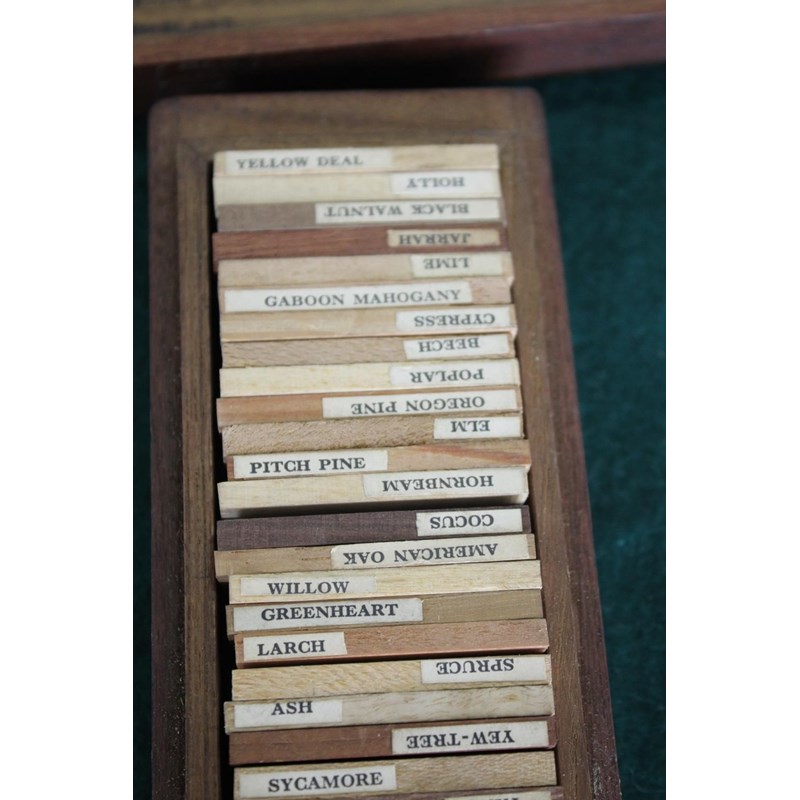 YELLOW DEAL
HOLLY
BLACK WALNUT
JARRAH
LIME
GABOON MAHOGANY
CYPRESS
BEECH
POPLAR
OREGON PINE
ELM
PITCH PINE
HORNBEAM
COCUS
AMERICAN OAK
WILLOW
GREENHEART
LARCH
SPRUCE
ASH
YEW-TREE
SYCAMORE